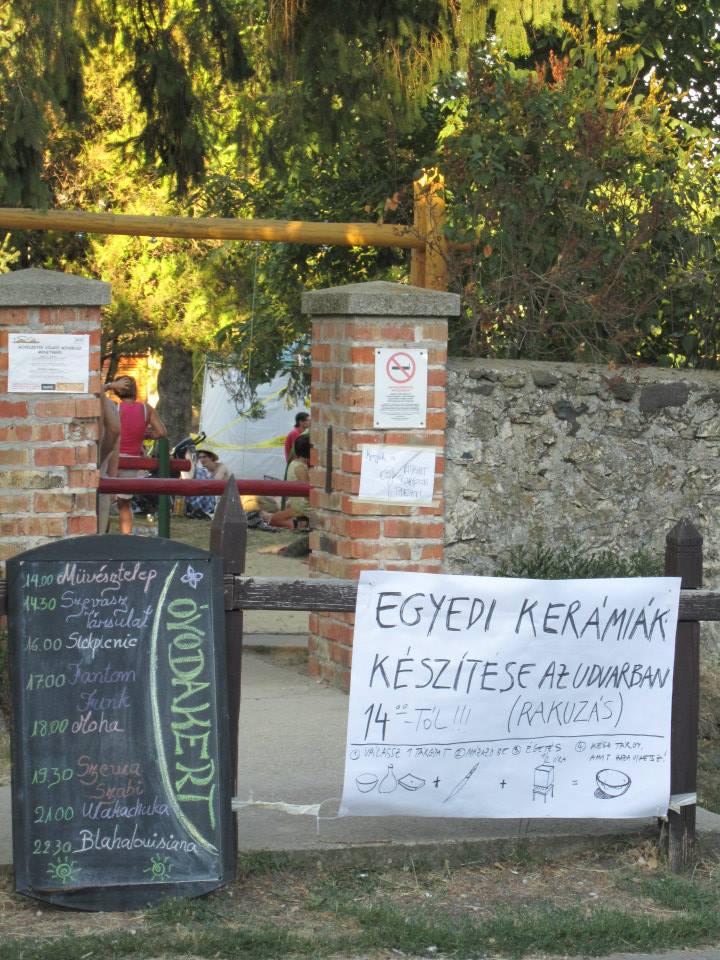 14.00 Müvésztelep
14.30 Szevasz
Társulat
16.00 Slckpicnic
17.00 Fantom
Funk
18.00 Moha
19.30 Szevea
Szabi
21.00 Wakachuka
22.30 Blahalouisiana
ÓVODAKERT
EGYEDI KERÁMIÁK
KÉSZÍTÉSE AZ UDVARBAN
14⁰⁰-TÓL!!! (RAKUZÁS)
① VÁLASSZ 1 TÁRGYAT ② MÁZAZD BE ③ ÉGETÉS ④ KÉSZ TÁRGY,
1/2 ÓRA AMIT HAZAVIHETSZ!
+ + =